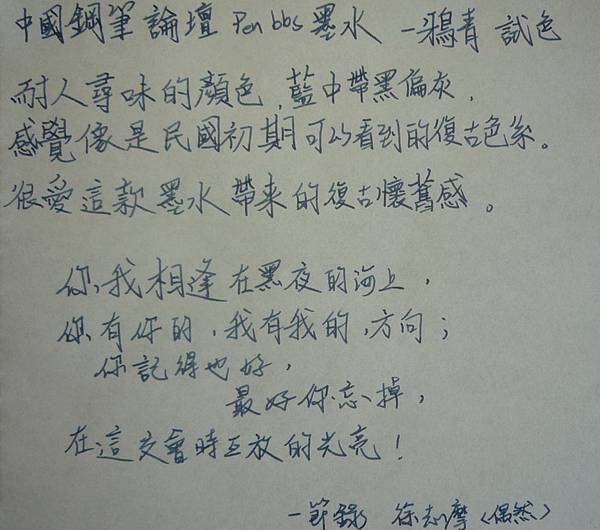 中國鋼筆論壇 Penbbs 墨水 —鴉青 試色
耐人尋味的顏色,藍中帶黑偏灰,
感覺像是民國初期可以看到的復古色系。
很愛這款墨水帶来的復古懷舊感。
你我相逢在黑夜的海上,
你有你的,我有我的,方向;
你記得也好,
最好你忘掉,
在這交會時互放的光亮!
—節錄 徐志摩〈偶然〉